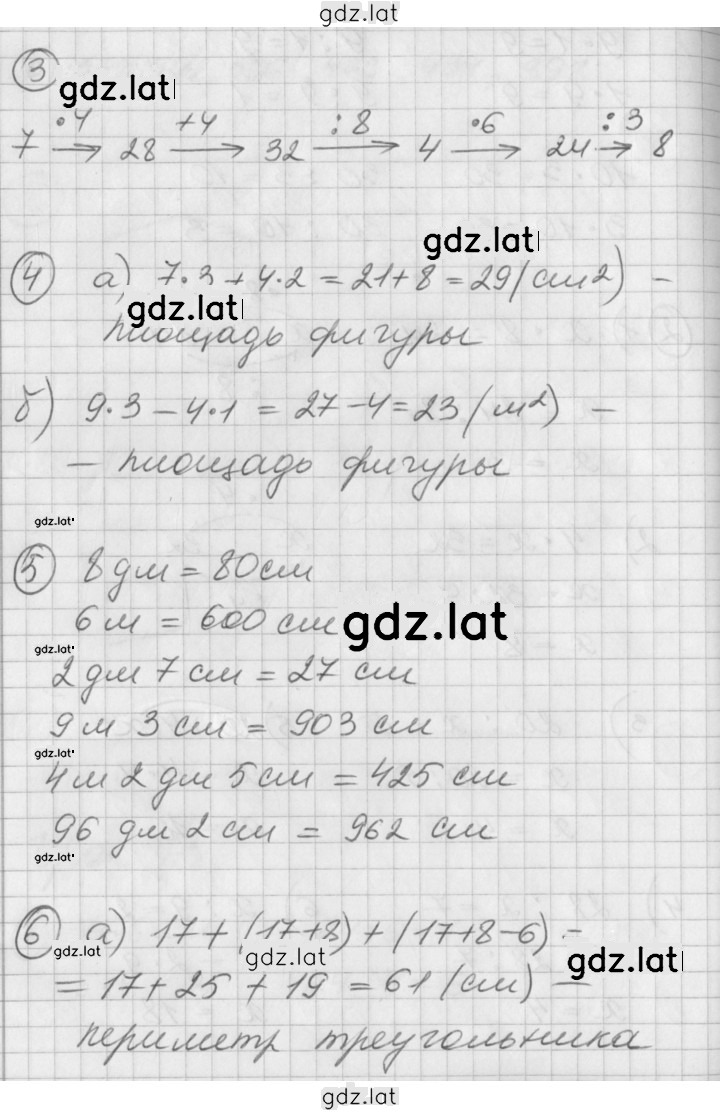 gdz.lat
3
gdz.lat
7 →(·4) 28 →(+4) 32 →(:8) 4 →(·6) 24 →(:3) 8
gdz.lat
4 а) 7·3 + 4·2 = 21+8 = 29 (см²) –
gdz.lat
площадь фигуры
б) 9·3 – 4·1 = 27 – 4 = 23 (м²) –
– площадь фигуры
gdz.lat
5 8 дм = 80 см
6 м = 600 см
gdz.lat
gdz.lat
2 дм 7 см = 27 см
9 м 3 см = 903 см
gdz.lat
4 м 2 дм 5 см = 425 см
96 дм 2 см = 962 см
gdz.lat
6 а) 17 + (17+8) + (17+8–6) =
gdz.lat
gdz.lat
gdz.lat
= 17 + 25 + 19 = 61 (см) –
периметр треугольника
gdz.lat